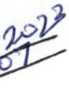 2023
07